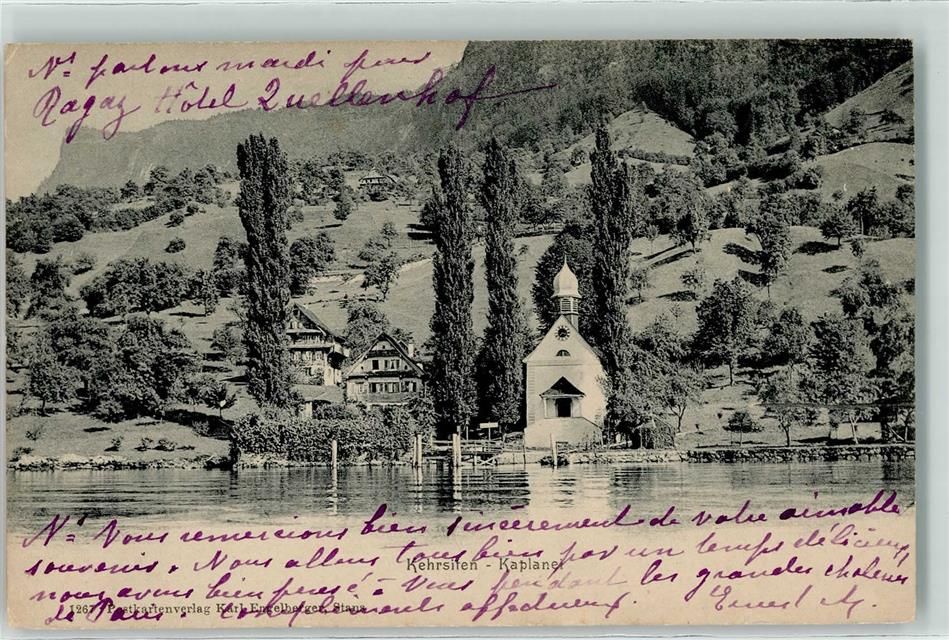 Ns partons mardi pour
Ragaz Hôtel Quellenhof
Ns Vous remercions bien sincèrement de votre aimable
souvenir. Nous allons tous bien par un temps délicieux,
Kehrsiten - Kaplanei
nous avons bien pensé à Vous pendant les grandes chaleurs
de Paris. Compliments affectueux. Ernest M.
1267 Postkartenverlag Karl Engelberger, Stans